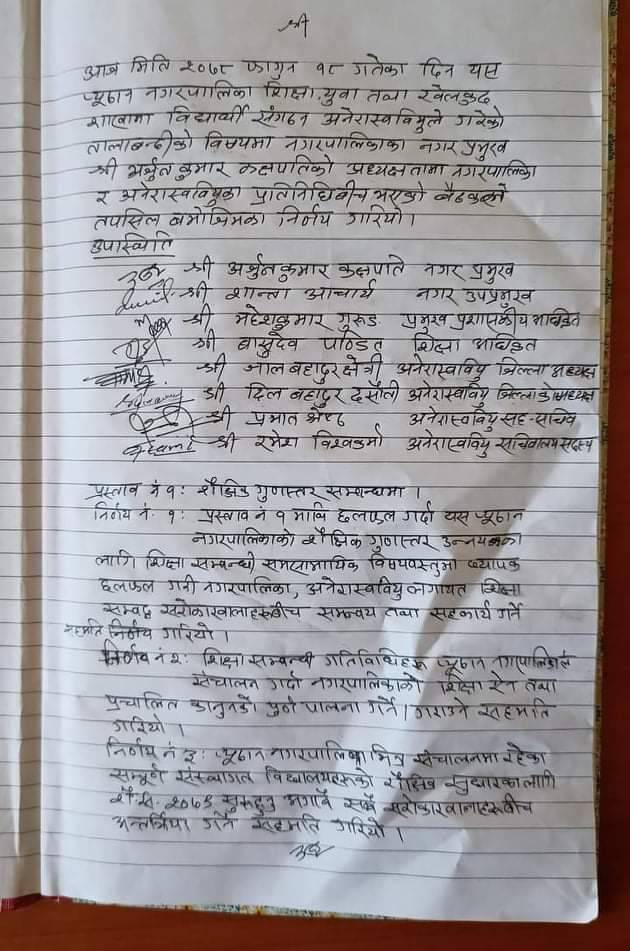 श्री
आज मिति २०७८ फागुन १८ गतेका दिन यस
प्यूठान नगरपालिका शिक्षा, युवा तथा खेलकुद
शाखामा विद्यार्थी संगठन अनेरास्ववियुले गरेको
तालाबन्दीको विषयमा नगरपालिकाका नगर प्रमुख
श्री अर्जुन कुमार कक्षपतिको अध्यक्षतामा नगरपालिका
र अनेरास्ववियुका प्रतिनिधिबीच भएको बैठकले
तपसिल बमोजिमका निर्णय गरियो।
उपस्थिति
श्री अर्जुनकुमार कक्षपति नगर प्रमुख
श्री शान्ता आचार्य नगर उपप्रमुख
श्री महेशकुमार गुरुङ प्रमुख प्रशासकीय अधिकृत
श्री बासुदेव पण्डित शिक्षा अधिकृत
श्री जालबहादुर क्षेत्री अनेरास्ववियु जिल्ला अध्यक्ष
श्री दिल बहादुर अनेरास्ववियु जिल्ला
श्री प्रभात श्रेष्ठ अनेरास्ववियु सह-सचिव
श्री रमेश विश्वकर्मा अनेरास्ववियु सचिवालय सदस्य
प्रस्ताव नं १: शैक्षिक गुणस्तर सम्बन्धमा।
निर्णय नं. १: प्रस्ताव नं १ माथि छलफल गर्दा यस प्यूठान
नगरपालिकाको शैक्षिक गुणस्तर उन्नयनका
लागि शिक्षा सम्बन्धी समसामायिक विषयवस्तुमा व्यापक
छलफल गरी नगरपालिका, अनेरास्ववियु लगायत शिक्षा
सम्बद्ध सरोकारवालाहरूबीच समन्वय तथा सहकार्य गर्ने
सहमति निर्णय गरियो।
निर्णय नं २: शिक्षा सम्बन्धी गतिविधिहरू प्यूठान नगरपालिकाले
संचालन गर्दा नगरपालिकाको शिक्षा ऐन तथा
प्रचालित कानुनको पुर्ण पालना गर्ने।गराउने सहमति
गरियो।
निर्णय नं ३: प्यूठान नगरपालिका भित्र संचालनमा रहेका
सम्पूर्ण संस्थागत विद्यालयहरूको शैक्षिक सुधारका लागि
शै.स. २०७९ सुरुहुनु अगावै सबै सरोकारवालाहरूबीच
अन्तर्क्रिया गर्ने सहमति गरियो।